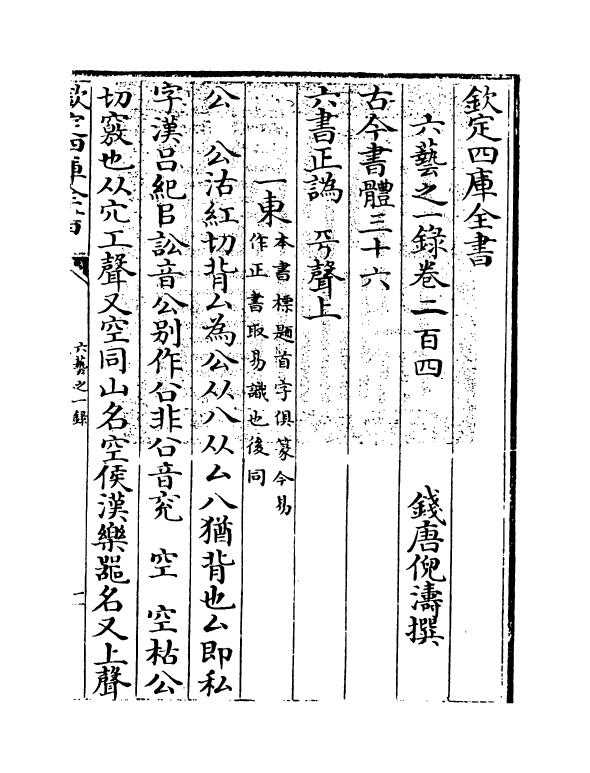 欽定四庫全書
六藝之一錄卷二百四 錢唐倪濤撰
古今書體三十六
六書正譌 平聲上
一東 本書標題首字俱篆今易
作正書取易識也後同
公 公沽紅切背厶為公从八从厶八猶背也厶即私
字漢吕紀㠯訟音公别作㕣非㕣音兖 空 空枯公
切竅也从穴工聲又空同山名空侯漢樂噐名又上聲
欽定四庫全書
六藝之一錄